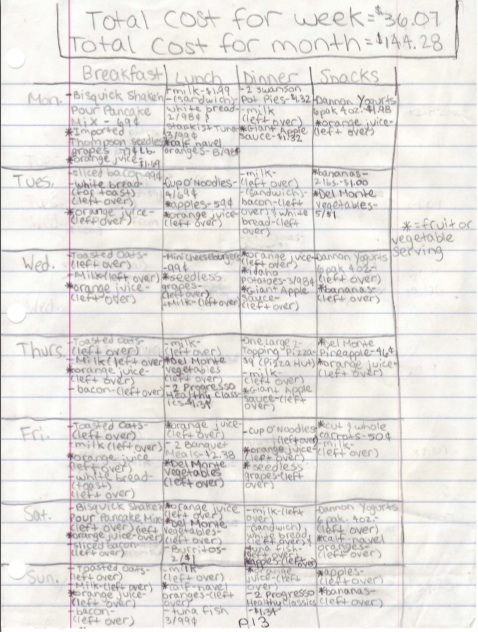 Total cost for week=$36.07
Total cost for month=$144.28
Breakfast Lunch Dinner Snacks
Mon.
-Bisquick Shaken
Pour Pancake
Mix - 69¢
*Imported
Thompson seedless
grapes
*orange juice-
$1.69
-milk-$1.99
-(sandwich)-
white bread-
2/98¢
Starkist Tuna
3/99¢
*calif navel
oranges-8/98¢
-2 Swanson
Pot Pies-$1.32
-milk
(left over)
*Giant Apple
Sauce-$1.32
-Dannon Yogurts
6pak 4oz-$1.98
*orange juice-
(left over)
Tues.
-sliced bacon-99¢
-white bread
(for toast)
(left over)
*orange juice-
(left over)
-Cup O'Noodles-
4/69¢
*apples-59¢
*orange juice-
(left over)
-milk-
(left over)
-(sandwich)-
bacon-(left
over) & white
bread-(left
over)
*bananas-
2lbs-$1.00
*Del Monte
vegetables-
5/$1
*=fruit or
vegetable
serving
Wed.
-Toasted Oats-
(left over)
-Milk(left over)
*orange juice-
(left over)
-Mini Cheeseburgers
99¢
*seedless
grapes-
(left over)
-Milk-(left over)
*orange juice-
(left over)
*Idaho
potatoes-3/98¢
*Giant Apple
Sauce-
(left over)
-Dannon Yogurts
6pak 4oz-
(left over)
*bananas-
(left over)
Thurs.
-Toasted Oats-
(left over)
-Milk(left over)
*orange juice-
(left over)
-bacon-(left over)
-milk-
(left over)
*Del Monte
vegetables
(left over)
-2 Progresso
Healthy Class-
ics-$1.34
-One large 2-
Topping "Pizza-
(Pizza Hut)
-milk-
(left over)
*Giant Apple
Sauce-(left over)
*Del Monte
Pineapple-46¢
*orange juice-
(left over)
Fri.
-Toasted Oats-
(left over)
-milk(left over)
*orange juice
(left over)
-white bread-
(toast)
(left over)
*orange juice-
(left over)
-2 Banquet
Meals-$2.38
*Del Monte
vegetables
(left over)
-Cup O'Noodles-
(left over)
*orange juice-
(left over)
*seedless
grapes-(left
over)
*cut & whole
carrots-50¢
-milk-
(left over)
Sat.
-Bisquick Shaken
Pour Pancake Mix
(left over)
*orange juice-(left over)
-sliced bacon-
(left over)
*orange juice
(left over)
*Del Monte
vegetables-
(left over)
-Burritos-
3/$1
-milk-(left
over)
-(sandwich)
white bread
(left over)
tuna fish-
(left over)
*apples(left over)
-Dannon Yogurts
6pak. 4oz-
(left over)
*calif-navel
oranges-
(left over)
Sun.
-Toasted Oats-
(left over)
-Milk-(left over)
*orange juice-
(left over)
-bacon-
(left over)
-milk-
(left over)
*calif-navel
oranges-(left
over)
-tuna fish
3/99¢
juice-(left
over)
-2 Progresso
Healthy Classics
-$1.34
*apples-
(left over)
*bananas-
(left over)
p13